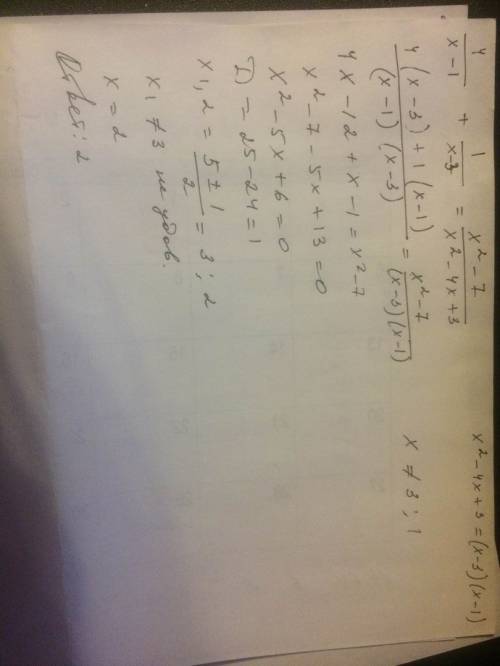 4/(x-1) + 1/(x-3) = (x²-7)/(x²-4x+3)    x²-4x+3=(x-3)(x-1)
(4(x-3)+1(x-1))/((x-1)(x-3)) = (x²-7)/((x-3)(x-1))    x≠3;1
4x-12+x-1=x²-7
x²-7-5x+13=0
x²-5x+6=0
D=25-24=1
x1,2 = (5±1)/2 = 3;2
x1≠3 не удов.
x=2
Ответ: 2